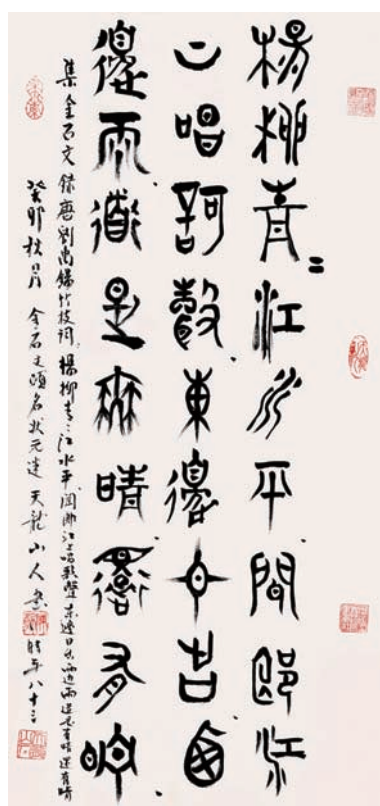 楊柳青〻江水平聞郎江
上唱訶聲東邊日出西
邊雨道是無晴還有晴
集金石文錄唐劉禹錫竹枝詞 楊柳青〻江水平 聞郎江上唱歌聲 東邊日出西邊雨 道是無晴還有晴
癸卯秋月 金石文 天龍山人 時年八十三